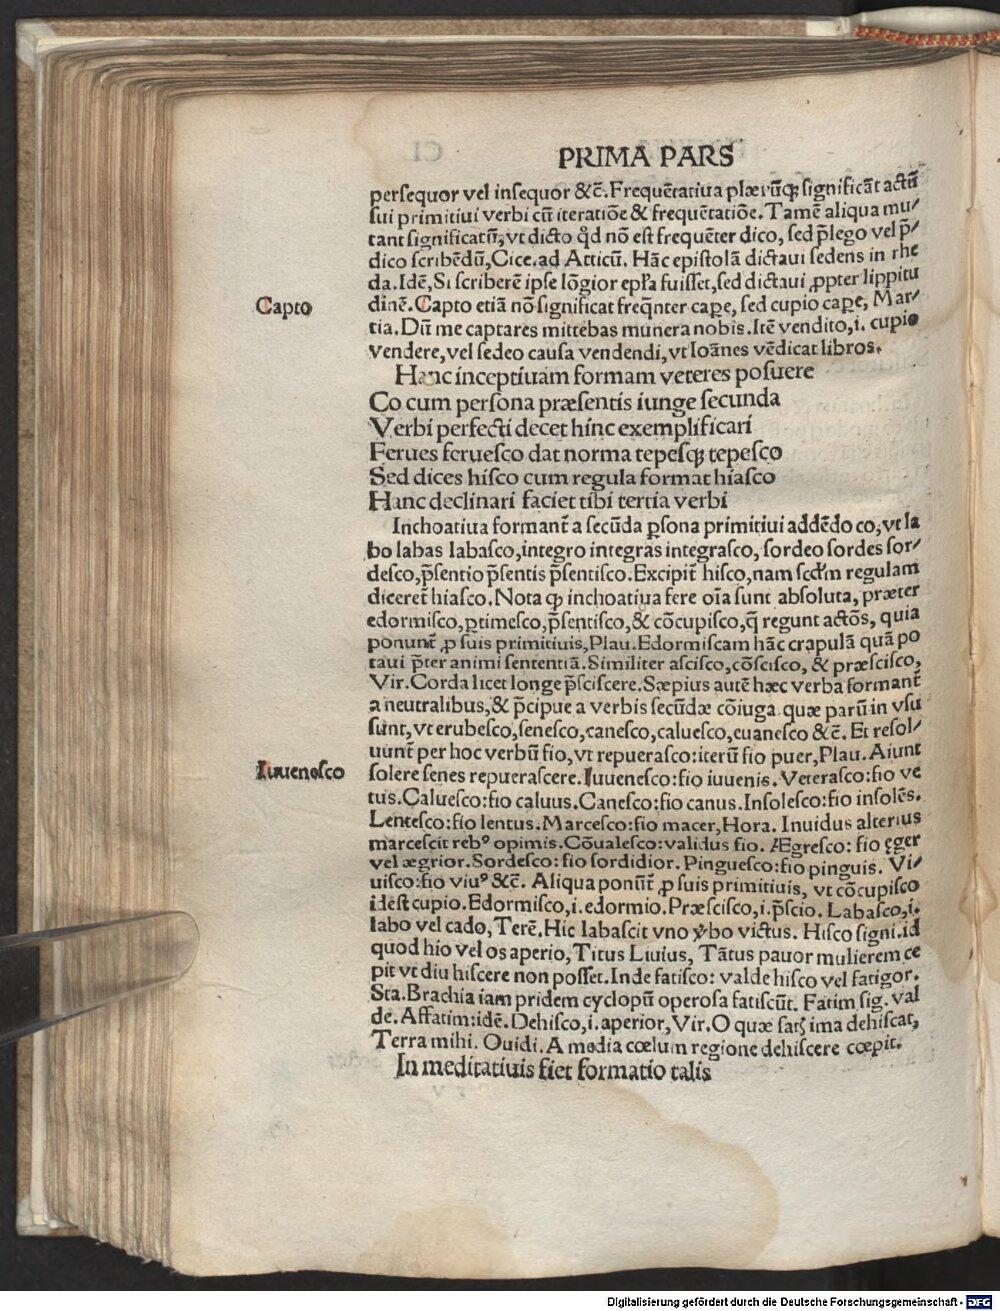 PRIMA PARS
persequor vel insequor &c̄. Frequētatiua plærūqꝫ significāt actū
sui primitiui verbi cū iteratiōe & frequētatiōe. Tamē aliqua mu⸗
tant significatū, vt dicto qd̄ nō est frequēter dico, sed p̄lego vel p̄⸗
dico scribēdū, Cice. ad Atticū. Hāc epistolā dictaui sedens in rhe
da. Idē, Si scriberē ipse lōgior epl̄a fuisset, sed dictaui ꝓpter lippitu
dinē. Capto etiā nō significat freq̄nter caꝑe, sed cupio caꝑe, Mar⸗
tia. Dū me captares mittebas munera nobis. Itē vendito, i. cupio
vendere, vel sedeo causa vendendi, vt Ioānes vēdicat libros.
Capto
Hanc inceptiuam formam veteres posuere
Co cum persona præsentis iunge secunda
Verbi perfecti decet hinc exemplificari
Ferues feruesco dat norma tepesqꝫ tepesco
Sed dices hisco cum regula format hiasco
Hanc declinari faciet tibi tertia verbi
Inchoatiua formant̄ a secūda ꝑsona primitiui addēdo co, vt la
bo labas labasco, integro integras integrasco, sordeo sordes sor⸗
desco, p̄sentio p̄sentis p̄sentisco. Excipit̄ hisco, nam scd̄m regulam
diceret̄ hiasco. Nota ꝙ inchoatiua fere oīa sunt absoluta, præter
edormisco, ꝑtimesco, p̄sentisco, & cōcupisco, q̄ regunt actōs, quia
ponunt̄ ꝓ suis primitiuis, Plau. Edormiscam hāc crapulā quā po
taui p̄ter animi sententiā. Similiter ascisco, cōscisco, & præscisco,
Vir. Corda licet longe p̄sciscere. Sæpius autē hæc verba formant̄
a neutralibus, & p̄cipue a verbis secūdæ cōiuga. quæ parū in vsu
sunt, vt erubesco, senesco, canesco, caluesco, euanesco &c̄. Et resol⸗
uunt̄ per hoc verbū fio, vt repuerasco: iterū fio puer, Plau. Aiunt
solere senes repuerascere. Iuuenesco: fio iuuenis. Veterasco: fio ve
Iuuenesco
tus. Caluesco: fio caluus. Canesco: fio canus. Insolesco: fio insolēs.
Lentesco: fio lentus. Marcesco: fio macer, Hora. Inuidus alterius
marcescit rebꝰ opimis. Cōualesco: validus fio. Ægresco: fio ęger
vel ægrior. Sordesco: fio sordidior. Pinguesco: fio pinguis. Vi⸗
uisco: fio viuꝰ &c̄. Aliqua ponūt̄ ꝓ suis primitiuis, vt cōcupisco
idest cupio. Edormisco, i. edormio. Præscisco, i. p̄scio. Labasco, i.
labo vel cado, Terē. Hic labascit vno v̊bo victus. Hisco signi. id
quod hio vel os aperio, Titus Liuius, Tātus pauor mulierem ce
pit vt diu hiscere non posset. Inde fatisco: valde hisco vel fatigor.
Sta. Brachia iam pridem cyclopū operosa fatiscūt. Fatim sig. val
de. Affatim: idē. Dehisco, i. aperior, Vir. O quæ satꝫ ima dehiscat,
Terra mihi. Ouidi. A media cœlum regione dehiscere cœpit.
In meditatiuis fiet formatio talis
Digitalisierung gefördert durch die Deutsche Forschungsgemeinschaft - DFG